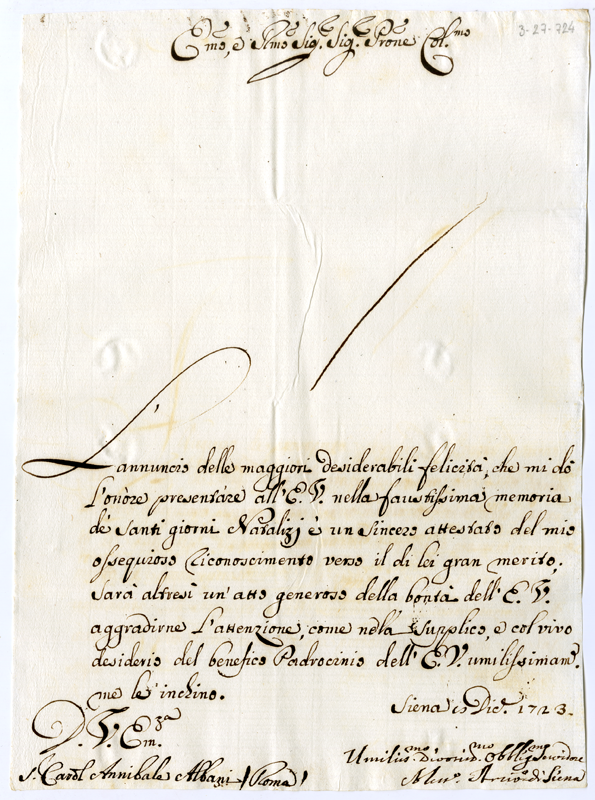 3-27-724
Emo, e Rmo Sig.r Sig.r Prone Col.mo
L'annuncio delle maggiori desiderabili felicità, che mi dò
l'onòre presentàre all'E. V. nella faustissima memoria
de santi giorni Natalizj è un sincero attestato del mio
ossequioso riconoscimento verso il di lei gran merito.
Sarà altresi un'atto generoso della bontà dell'E. V.
aggradirne l'attenzione, come nè la supplico, e col vivo
desiderio del benefico Padrocinio dell'E. V. umilissimam.e
me le inchino.
Siena Dic.e 1723.
D. V. Em.za
Umiliss.mo Obblig.mo
S.r Card.l Annibale Albani (Roma)
Aless.o Arciv.o di Siena